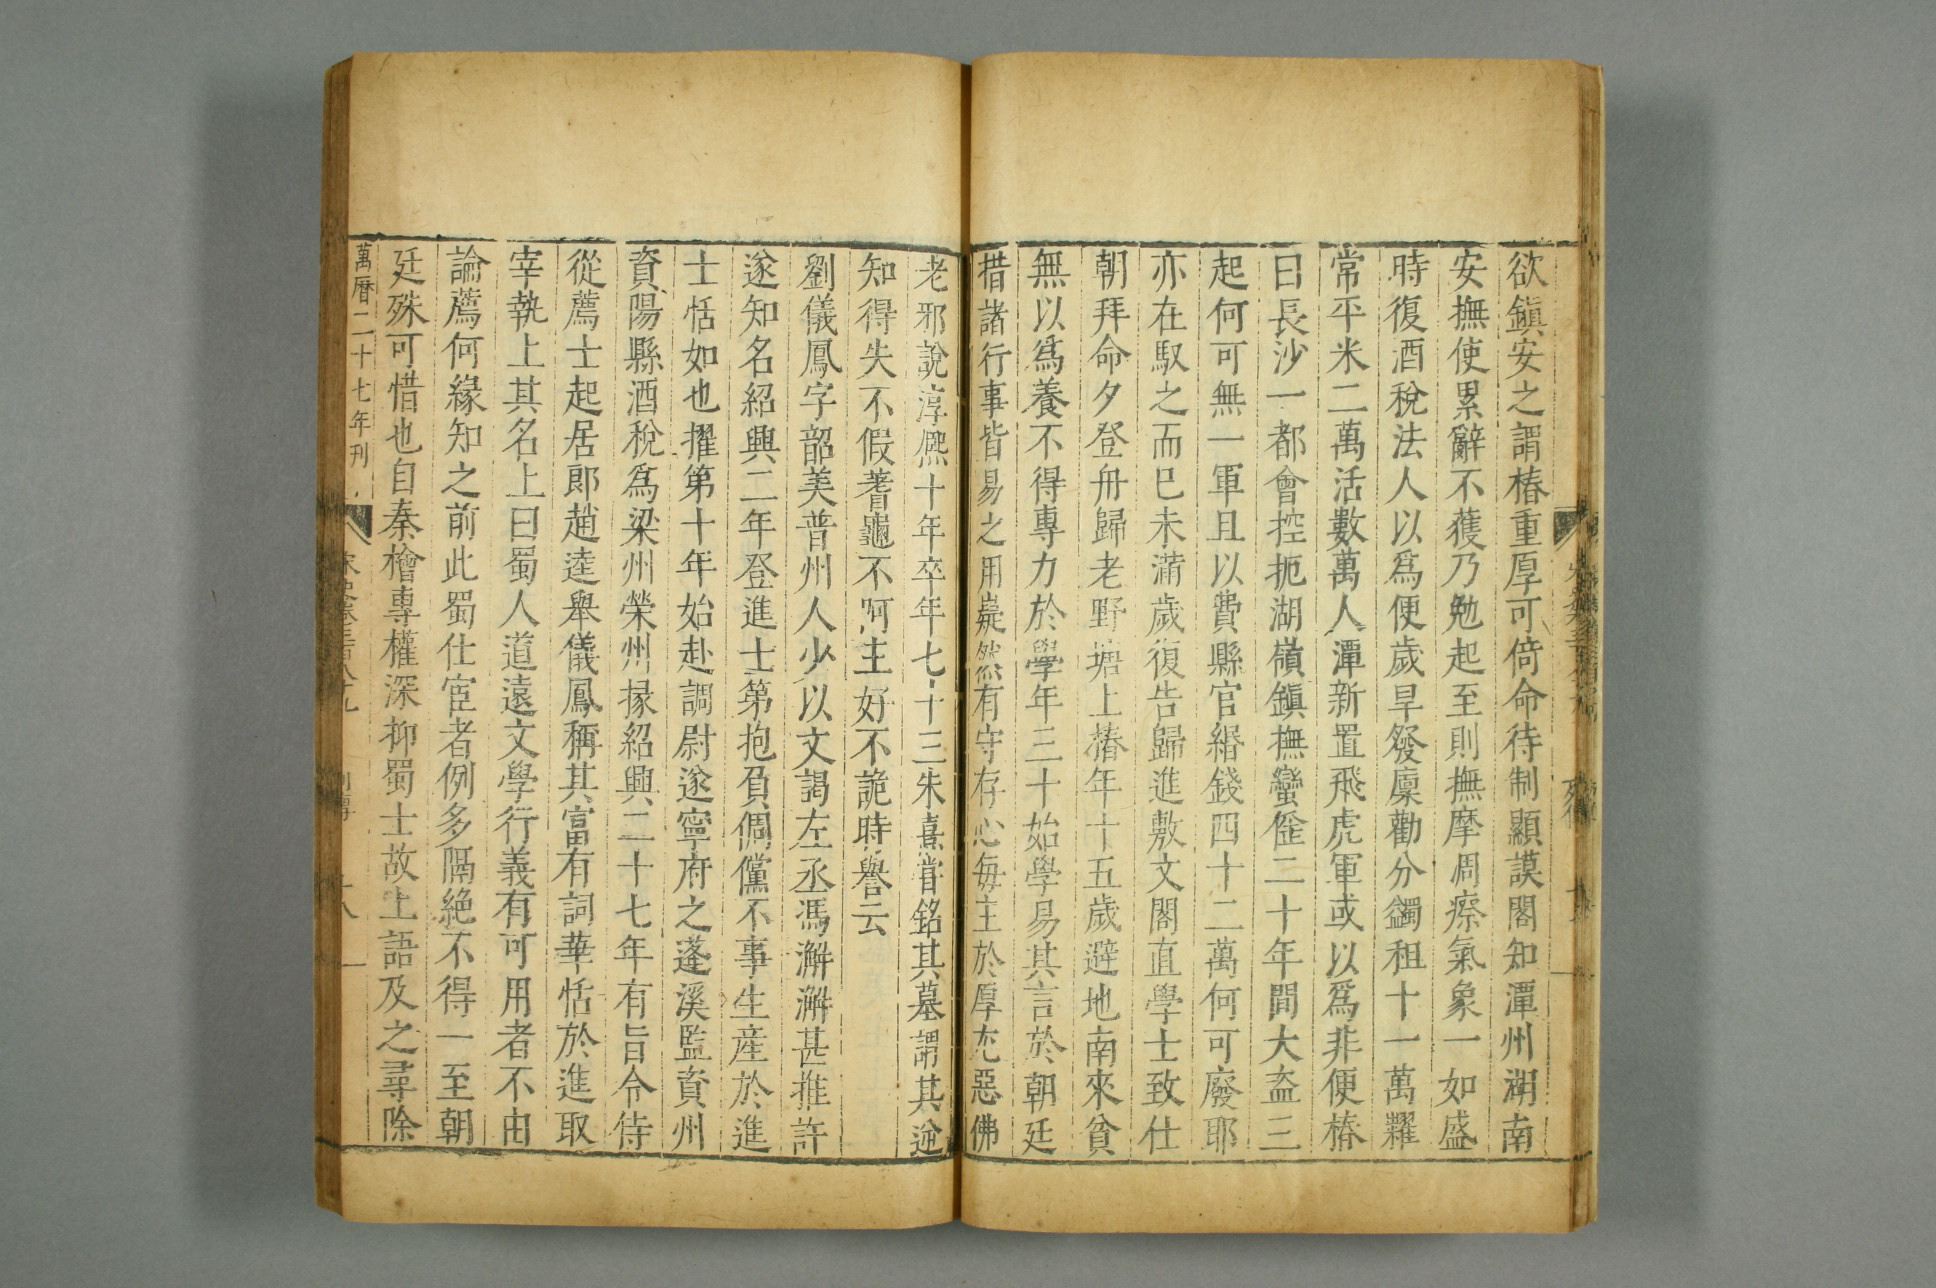 欲鎭安之謂椿重厚可倚命待制顯謨閣知潭州湖南
安撫使累辭不獲乃勉起至則撫摩凋瘵氣象一如盛
時復酒稅法人以爲便歲旱發廩勸分蠲租十一萬糶
常平米二萬活數萬人潭新置飛虎軍或以爲非便椿
曰長沙一都會控扼湖嶺鎭撫蠻徭二十年間大盜三
起何可無一軍且以費縣官緡錢四十二萬何可廢耶
亦在馭之而已未滿歲復告歸進敷文閣直學士致仕
朝拜命夕登舟歸老野塘上椿年十五歲避地南來貧
無以爲養不得專力於學年三十始學易其言於朝廷
措諸行事皆易之用嶷然有守存心每主於厚尤惡佛
老邪說淳熙十年卒年七十三朱熹嘗銘其墓謂其逆
知得失不假蓍龜不阿主好不詭時譽云
劉儀鳳字韶美普州人少以文謁左丞馮澥澥甚推許
遂知名紹興二年登進士第抱負倜儻不事生産於進
士恬如也擢第十年始赴調尉遂寧府之蓬溪監資州
資陽縣酒稅爲梁州榮州掾紹興二十七年有旨令侍
從薦士起居郎趙逵舉儀鳳稱其富有詞華恬於進取
宰執上其名上曰蜀人道遠文學行義有可用者不由
論薦何緣知之前此蜀仕宦者例多隔絶不得一至朝
廷殊可惜也自秦檜專權深抑蜀士故上語及之尋除
萬曆二十七年刊
宋史卷三百八十九 列傳 十八